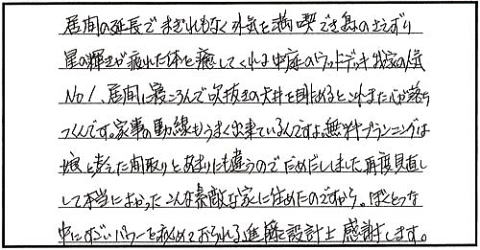 居間の延長でまぎれもなく外気を満喫でき鳥のさえずり
星の輝きが疲れた体を癒してくれる中庭のウッドデッキ我家の人気
No1、居間に寝ころんで吹抜きの天井を眺めるとこれまた心が落ち
つくんです。家事の動線もうまく出来ているんですよ。無料プランニングは
娘と考えた間取りとあまりにも違うのでだめだししました。再度見直し
して本当によかった こんな素敵な家に住めたのですから。ぼくとつな
中にすごいパワーを秘めておられる進藤設計士 感謝します。